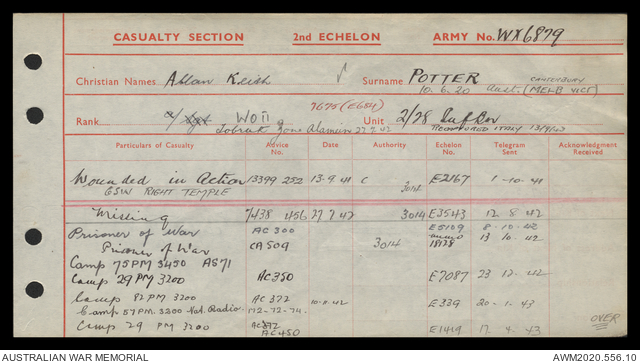 CASUALTY SECTION 2nd ECHELON ARMY No. WX6879
Christian Names Allan Keith Surname POTTER CANTERBURY
10.6.20 Aust. (MELB VICT)
7675 (E684)
Rank A/Sgt WO II Unit 2/28 Inf Bn
Tobruk Zone Alamein 27.7.42 RECOVERED ITALY 13/9/43
Particulars of Casualty Advice No. Date Authority Echelon No. Telegram Sent Acknowledgment Received
Wounded in Action 13399 252 13.9.41 C 3014 E2167 1-10-41
GSW RIGHT TEMPLE
Missing 7438 456 27 7 42 3014 E3543 12.8.42
Prisoner of War AC 300 E5109 8-10-42
Prisoner of War CA 509 3014 18128 13 10.42
Camp 75 PM 3450 AS71
Camp 29 PM 3200 AC350 E7087 23 12 42
Camp 82 PM 3200 AC 372 10.11.42 E339 20-1.43
Camp 57 PM. 3200 Nat. Radio 172-72-74.
Camp 29 PM 3200 AC372 E1419 17.4.43
AC450
OVER
AUSTRALIAN WAR MEMORIAL AWM2020.556.10